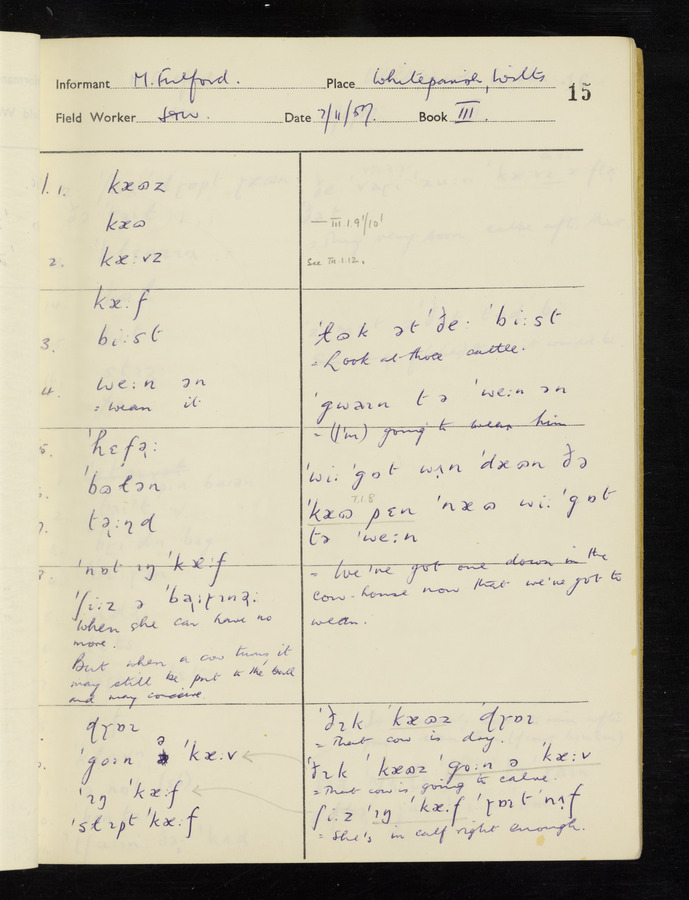 Informant M. Fulford. Place Whiteparish, Wilts 15
Field Worker Date 7/11/57. Book III.
1. 1. kæʊz
kæʊ — III.1.9'/10'
2. kæːvz See
kæːf
3. biːst ˈlʊk ət ˈðe· ˈbiːst
= Look at those cattle.
4. weːn ən ˈgwaɪn tə ˈweːn ən
= wean it = (I'm) going to wean him
5. ˈhɛfəː ˈwiː ˈgɒt ˈdæʊn ðə
ˈbʊlən ˈkæʊ pɛn ˈnæʊ wiː ˈgɒt
7. təːnd tə ˈweːn
ˈnɒt ɪŋ ˈkæːf = We've got one down in the
cow-house now that we've got to
wean.
when she can have no
more.
But when a cow turns it
may still be put to the bull
and may conceive.
ˈkæʊz
= That cow is dry.
ˈgoɪn ə ˈkæːv ˈkæʊz ˈgoːn ə ˈkæːv
= That cow is going to calve.
ˈɪŋ ˈkæːf ʃiːz ˈɪŋ ˈkæːf
ˈslɪpt ˈkæːf = She's in calf right enough.